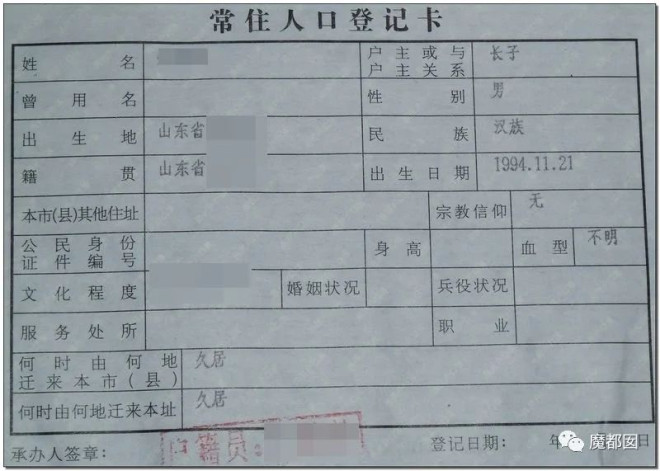 常住人口登记卡
姓 名 户主或与户主关系 长子
曾用名 性别 男
出生地 山东省 民族 汉族
籍贯 山东省 出生日期 1994.11.21
本市(县)其他住址 宗教信仰 无
公民身份证件编号 身高 血型 不明
文化程度 婚姻状况 兵役状况
服务处所 职业
何时由何地迁来本市(县) 久居
何时由何地迁来本址 久居
承办人签章: 户籍员: 登记日期: 年 日
魔都囡